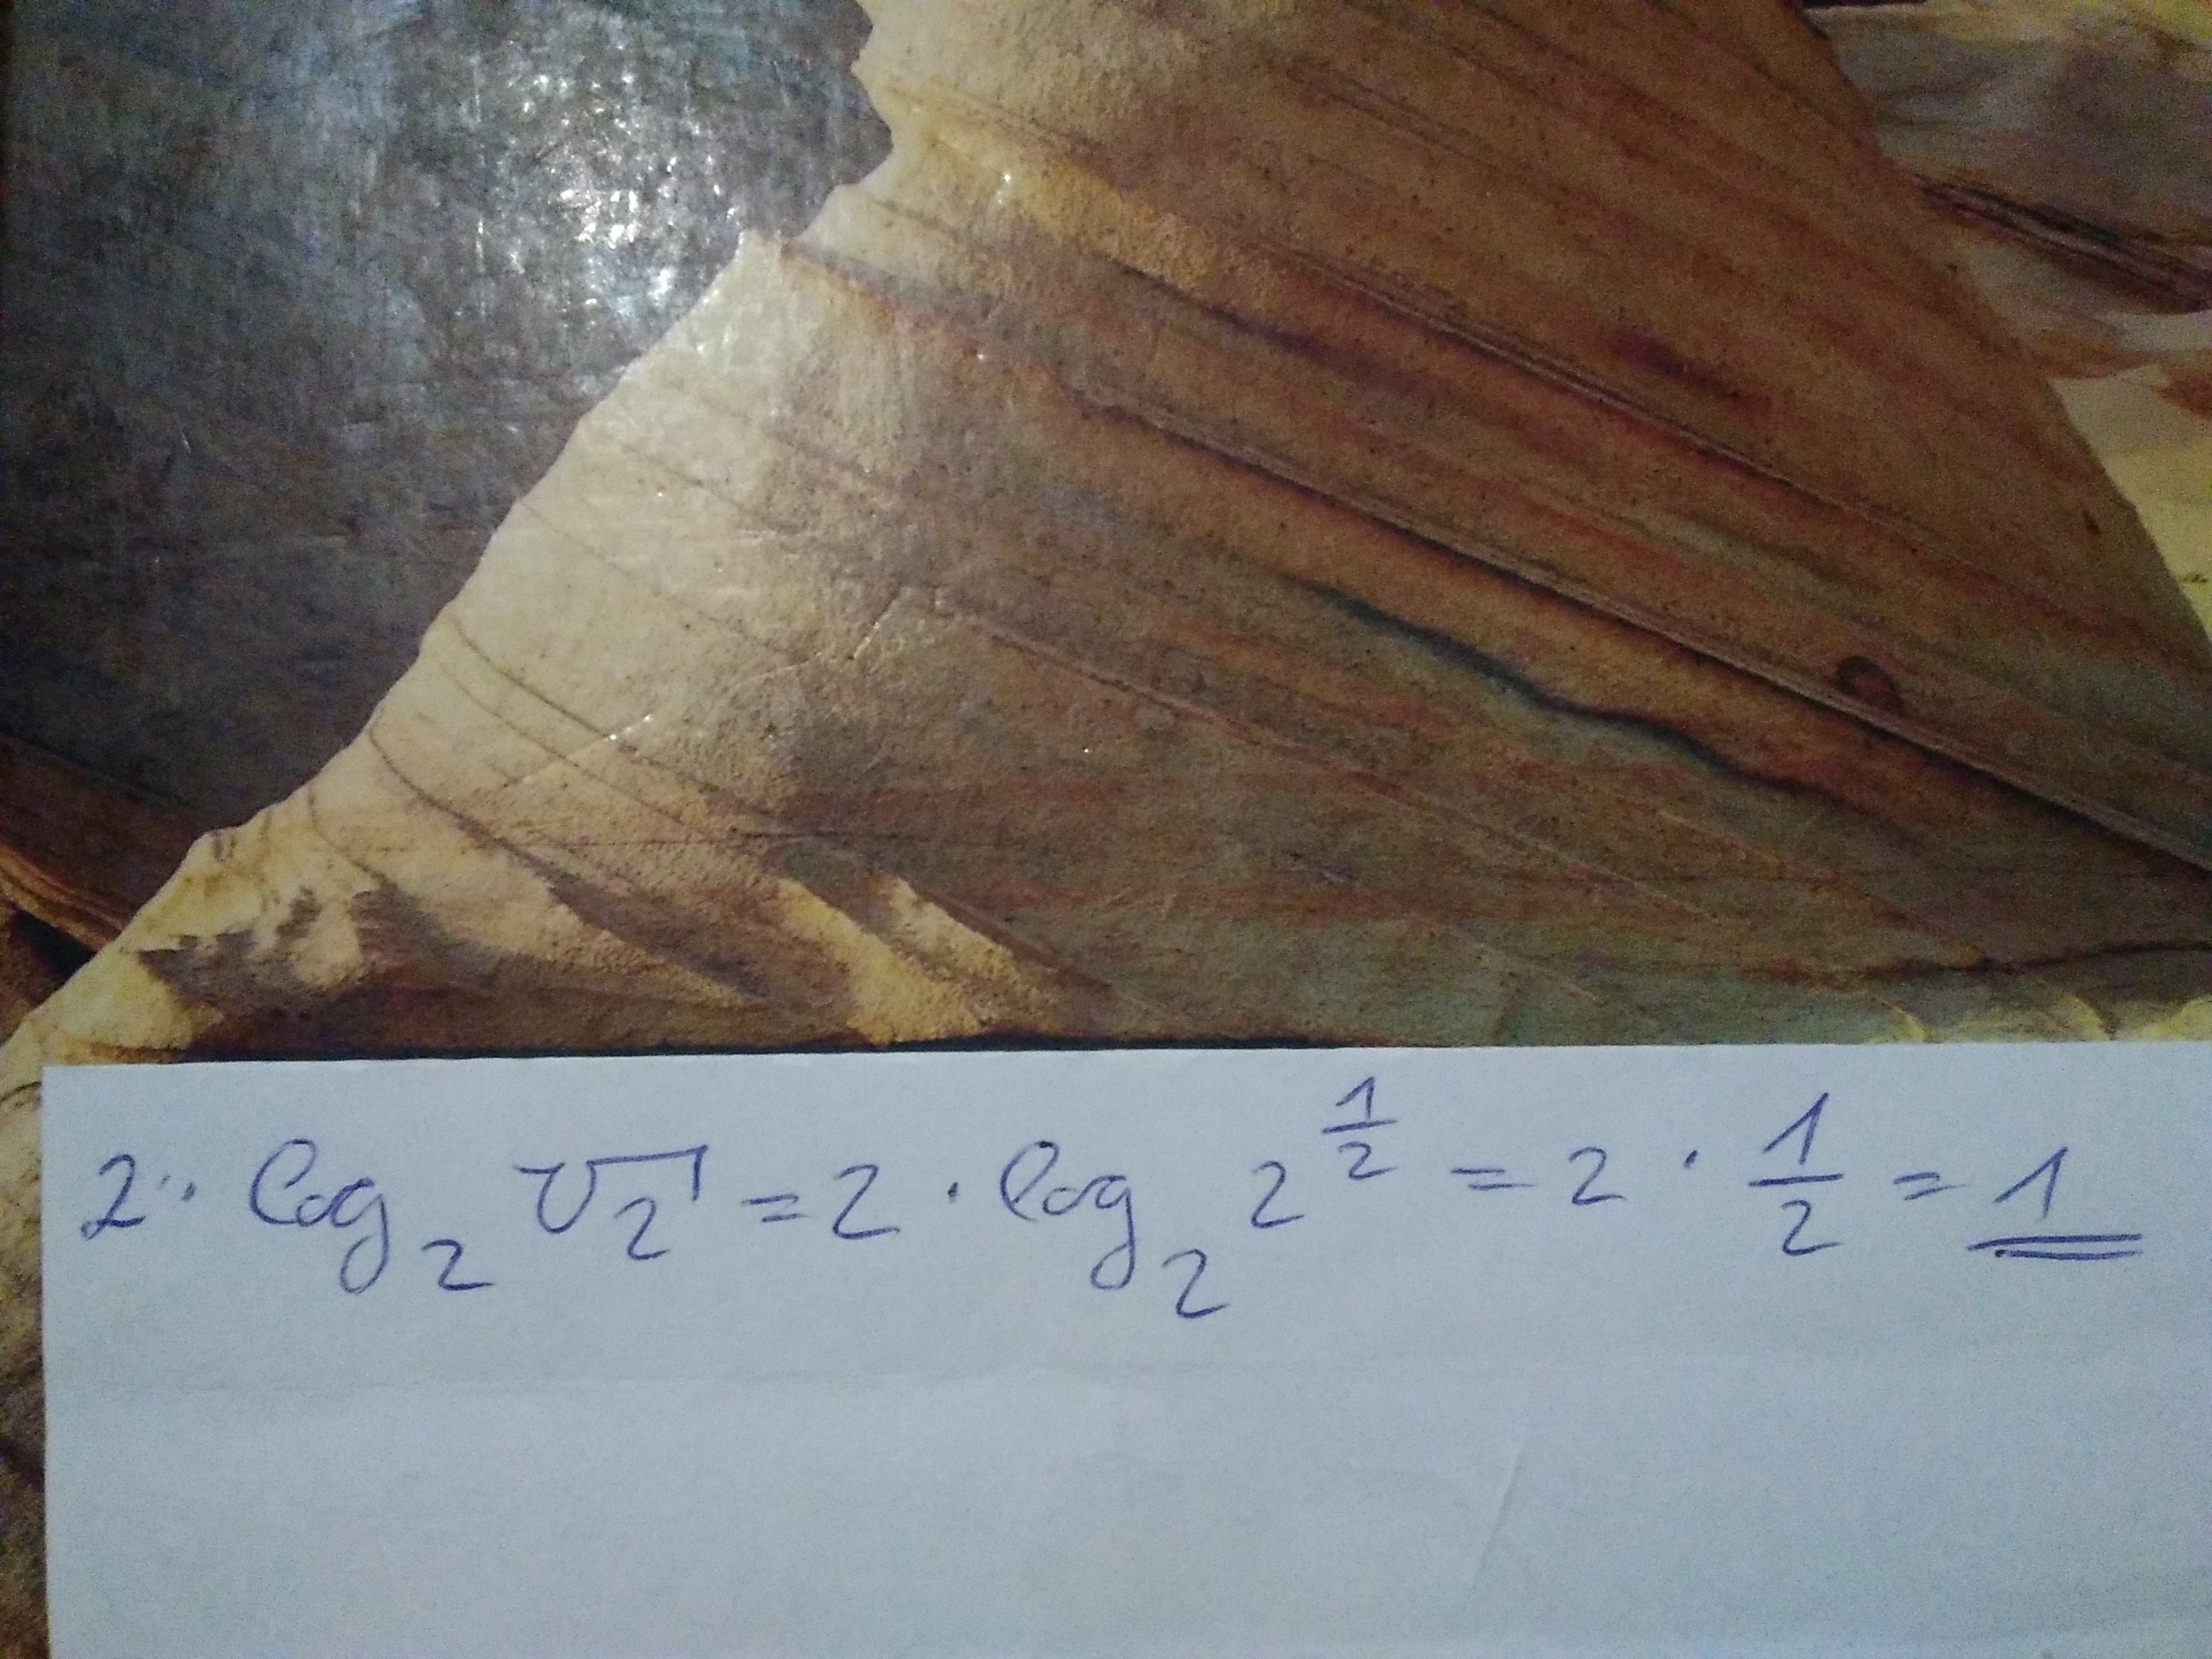 2 · log₂ √2 = 2 · log₂ 2^(1/2) = 2 · 1/2 = 1